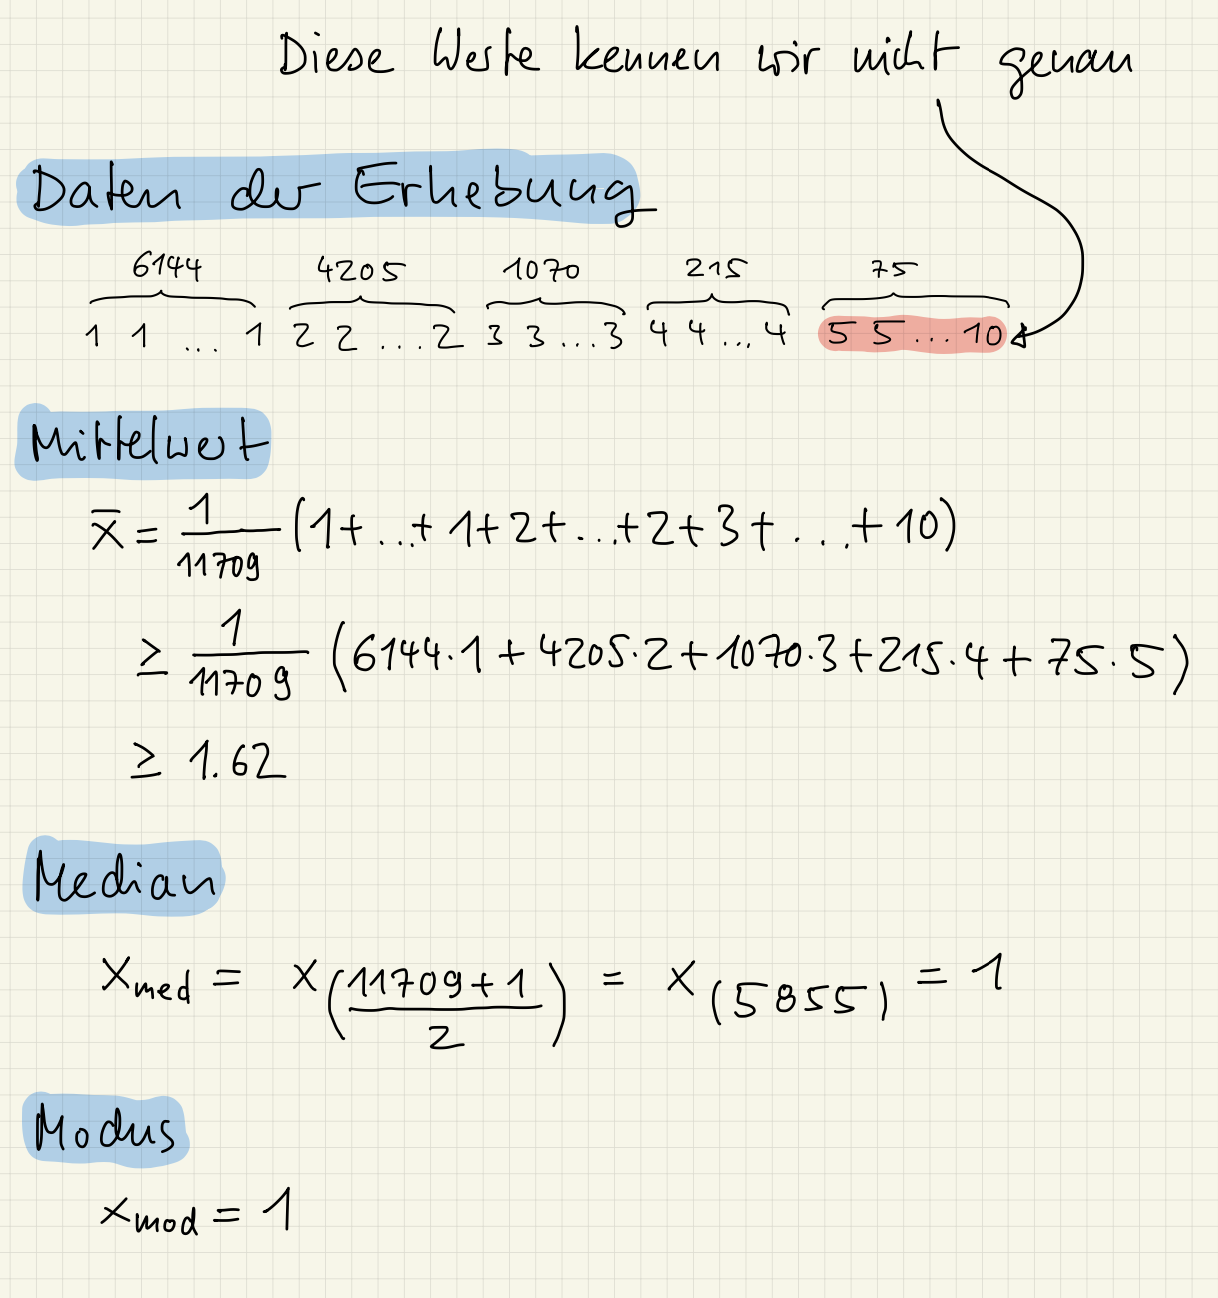 Diese Werte kennen wir nicht genau
Daten der Erhebung
6144 4205 1070 215 75
1 1 ... 1 2 2 ... 2 3 3 ... 3 4 4 ... 4 5 5 ... 10
Mittelwert
x̄ = 1/11709 (1+...+1+2+...+2+3+ ... +10)
≥ 1/11709 (6144·1+4205·2+1070·3+215·4+75·5)
≥ 1.62
Median
x_med = x_((11709+1)/2) = x_(5855) = 1
Modus
x_mod = 1